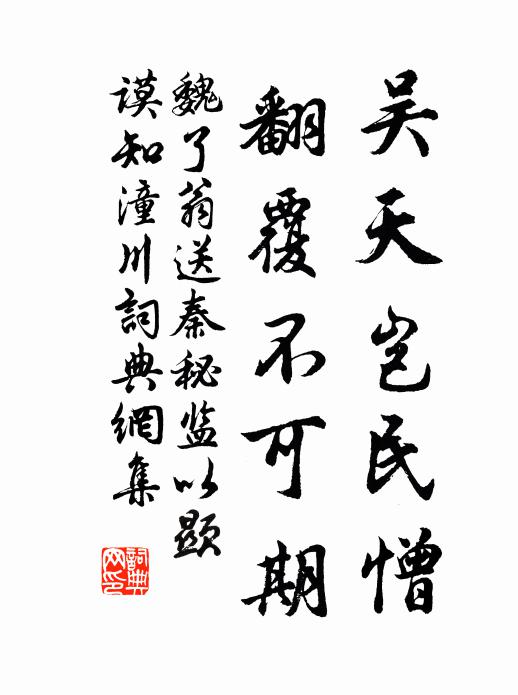 吴天岂民憎
翻覆不可期
魏了翁送秦秘监以顕
谟知潼川詞典網集
詞典
网印